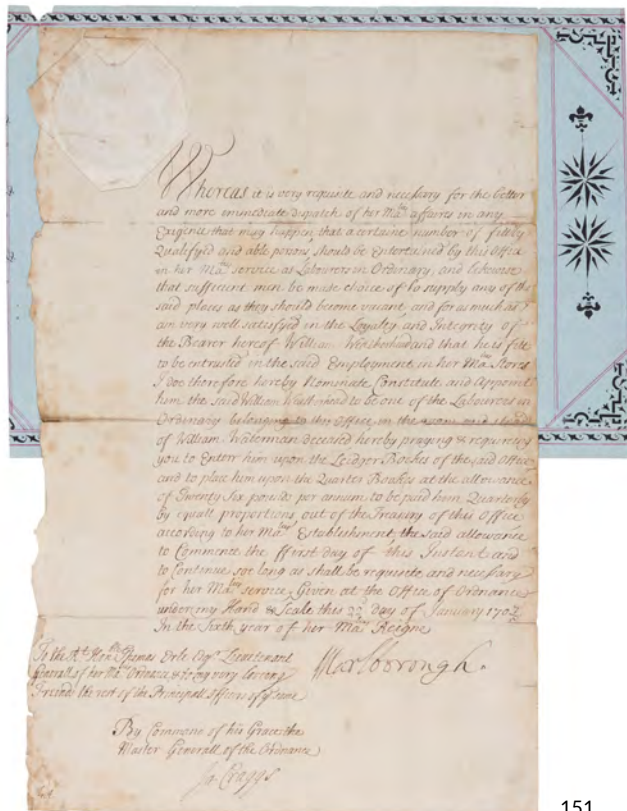 Whereas it is very requisite and necessary for the better
and more immediate dispatch of her Ma.ties affaires in any
Exigence that may happen, that a certaine number of fittly
Qualifyed and able persons should be Entertained by this Office
in her Ma.ties service as Labourers in Ordinary, and likewise
that sufficient men be made choice of to supply any of the
said places as they should become vacant and for as much as I
am very well satisfyed in the Loyalty and Integrity of
the Bearer hereof William and that he is fitt
to be entrusted in the said Employment in her Ma.ties Stores
I doe therefore hereby Nominate Constitute and Appoint
him the said William to be one of the Labourers in
Ordinary belonging to this Office in the room and stead
of William Waterman deceased hereby praying & requireing
you to Enter him upon the Leidger Bookes of the said Office
and to place him upon the Quarter Bookes at the allowance
of Twenty Six pounds per annum to be paid him Quarterly
by equall proportions out of the Treasury of this Office
according to her Ma.ties Establishment, the said allowance
to Commence the ffirst day of this Instant and
to Continue soe long as shall be requisite and necessary
for her Ma.ties service, Given at the Office of Ordnance
under my Hand & Seale this day of January
In the Sixth year of her Ma.ties Reigne
To the R.t Hon.ble Thomas Erle Esq.r Lieutenant
Generall of her Ma.ties Ordnance, & to my very loveing
Friends the rest of the Principall Officers of y.e same
Marlborough.
By Command of his Grace the
Master Generall of the Ordnance
Ja: Craggs
151